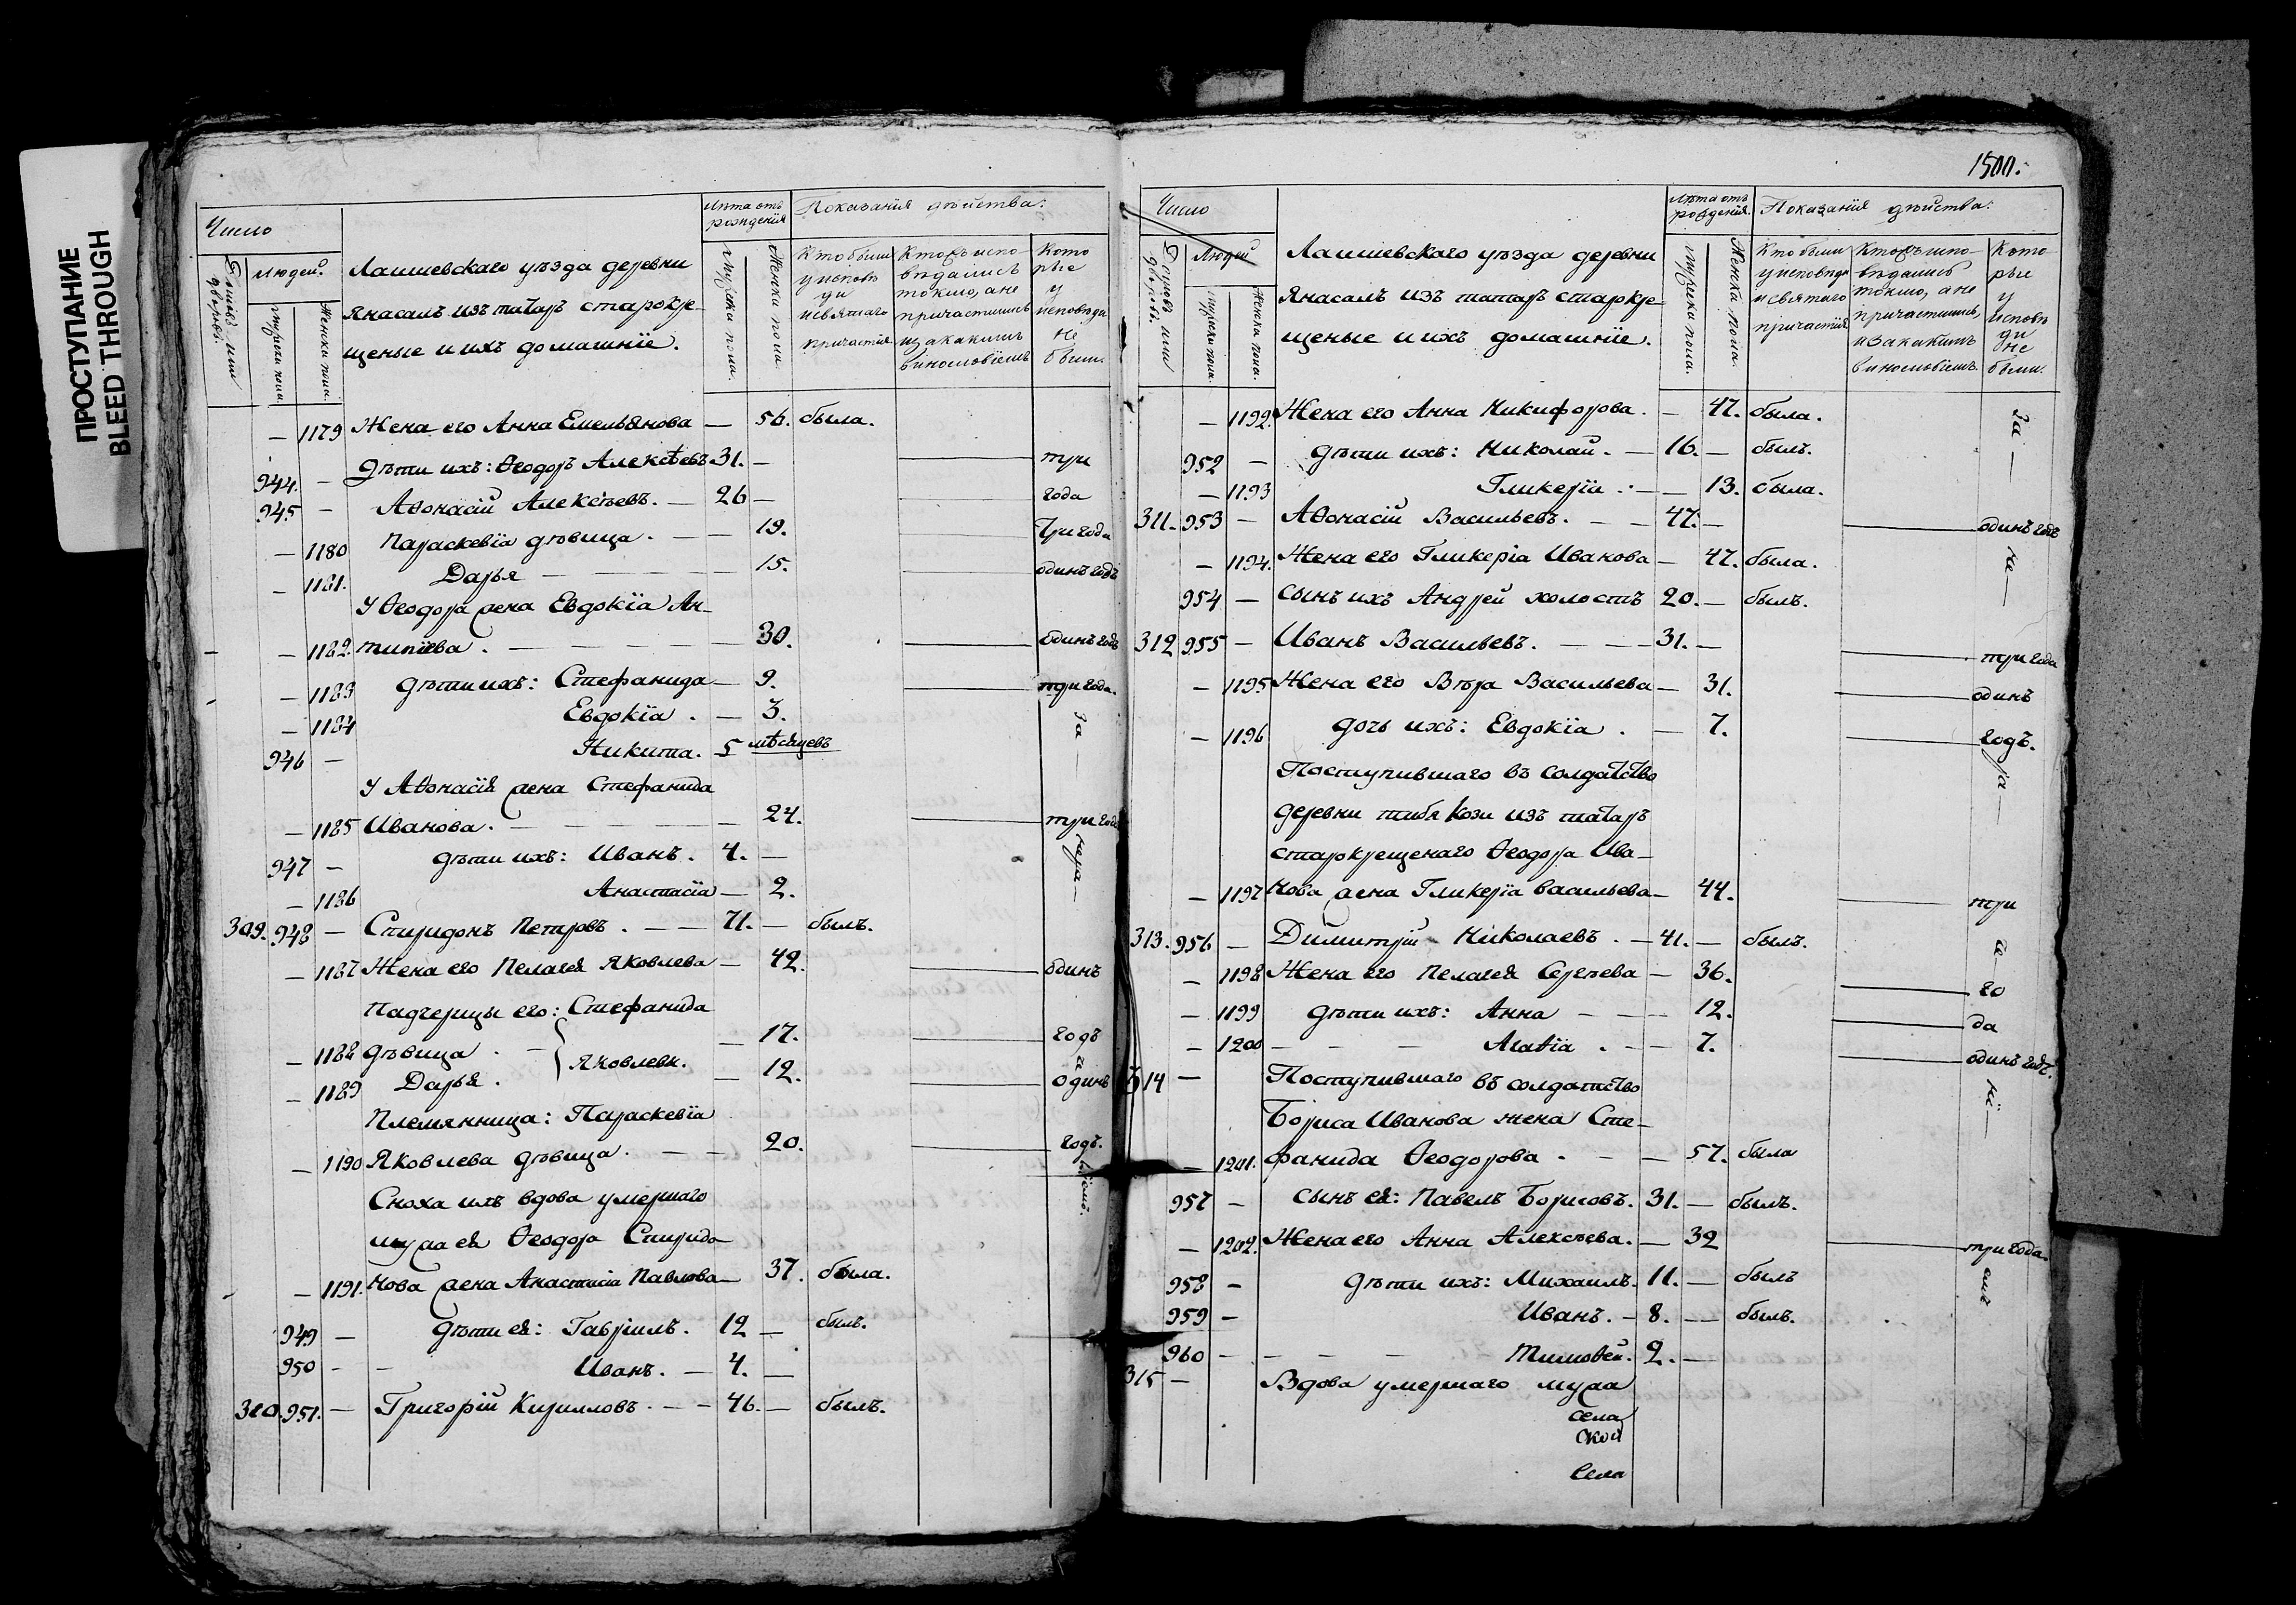 ПРОСТУПАНИЕ
BLEED THROUGH
Число
Людей.
Домовъ или дворовъ.
Мужска пола.
Женска пола.
Лаишевскаго уѣзда деревни
Янасалъ изъ татаръ старокре-
щеные и ихъ домашніе.
Лѣта отъ рожденія
Мужска пола.
Женска пола.
Показанія дѣйства:
Кто были у исповѣди и святаго причастія
Кто исповѣдались токмо, а не причастились и за какимъ винословіемъ
Которые у исповѣди не были.
— 1179 Жена его Анна Емельянова — 56. была.
944. — Дѣти ихъ: Ѳеодоръ Алексѣевъ 31. — три
945 — Аѳонасій Алексѣевъ. — 26 — года
— 1180 Параскевія дѣвица. — — 19. Три года
— 1181. Дарья — 15. одинъ годъ
У Ѳеодора жена Евдокія Ан-
— 1182. типіева. — 30. одинъ годъ
— 1183 Дѣти ихъ: Стефанида — 9. три года.
— 1184 Евдокія. — 3. За
946 — Никита. 5 мѣсяцевъ
У Аѳонасія жена Стефанида
— 1185 Иванова. — 24. три года
947 — дѣти ихъ: Иванъ. 4. —
— 1186 Анастасія — 2.
309. 948 — Спиридонъ Петровъ. — 71. — былъ.
— 1187 Жена его Пелагея Яковлева — 42. одинъ
Падчерицы его: Стефанида
— 1188 дѣвица. — 17. годъ
Яковлевы.
— 1189 Дарья. — 12. одинъ
Племянница: Параскевія
— 1190 Яковлева дѣвица. — 20. годъ.
Сноха ихъ вдова умершаго
мужа ея Ѳеодора Спиридо-
— 1191. нова жена Анастасія Павлова — 37. была.
949 — Дѣти ея: Гавріилъ. 12 — былъ.
950 — — Иванъ. — 4. —
310. 951. — Григорій Кирилловъ. — 46. — былъ.
1500.
Число
Людей
Домовъ или дворовъ.
Мужска пола.
Женска пола.
Лаишевскаго уѣзда деревни
Янасалъ изъ татаръ старокре-
щеные и ихъ домашніе.
Лѣта отъ рожденія.
Мужска пола.
Женска пола.
Показанія дѣйства:
Кто были у исповѣди и святаго причастія
Кто исповѣдались токмо, а не причастились, и за какимъ винословіемъ.
Которые у исповѣди не были.
— 1192. Жена его Анна Никифорова. — 47. была. За
952 — дѣти ихъ: Николай. — 16. — былъ.
— 1193 Гликерія. — 13. была.
311. 953 — Аѳонасій Васильевъ. — 47. — одинъ годъ
— 1194. Жена его Гликерія Иванова — 47. была. не
954 — сынъ ихъ Андрей холостъ 20. — былъ.
312 955 — Иванъ Васильевъ. — 31. — три года
— 1195 Жена его Вѣра Васильева — 31. одинъ
— 1196 дочь ихъ: Евдокія. — 7. годъ.
Поступившаго въ солдатство
деревни изъ татаръ
старокрещенаго Ѳеодора Ива-
— 1197 нова жена Гликерія Васильева — 44. три
313. 956 — Димитрій Николаевъ. — 41. — былъ.
— 1198 Жена его Пелагея Сергѣева — 36. го
— 1199 дѣти ихъ: Анна — 12. да
— 1200 — Агаѳія. — 7. одинъ годъ.
314 — Поступившаго въ солдатство
Бориса Иванова жена Сте-
— 1201. фанида Ѳеодорова. — 57. была
957 — сынъ ея: Павелъ Борисовъ. 31. — былъ.
— 1202. Жена его Анна Алексѣева. — 32 три года
958 — дѣти ихъ: Михаилъ. 11. — былъ
959 — Иванъ. — 8. — былъ.
960 — — Тимоѳей. 2. —
315 — Вдова умершаго мужа
села
ской
села